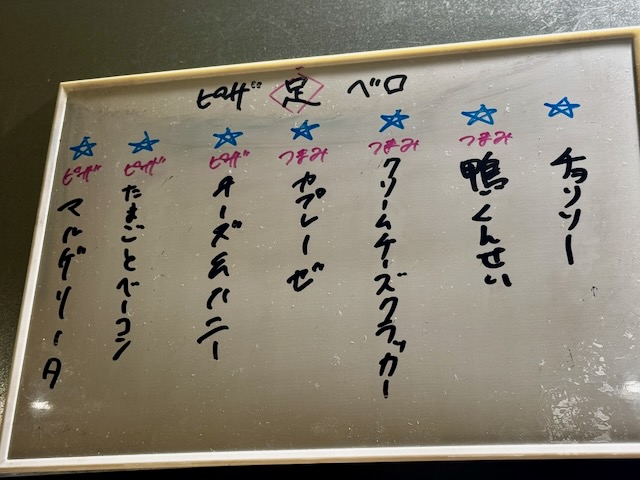 ピザ 足 ベロ
☆ チョリソー
☆ つまみ 鴨くんせい
☆ つまみ クリームチーズクラッカー
☆ つまみ カプレーゼ
☆ ピザ チーズ&ハニー
☆ ピザ たまごとベーコン
☆ ピザ マルゲリータ